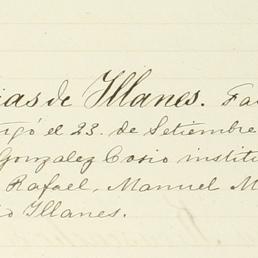 ias de Illanes. Fa
rgó el 23 de Setiembre
Gonzalez Cosio institu
Rafael, Manuel M
io Illanes.